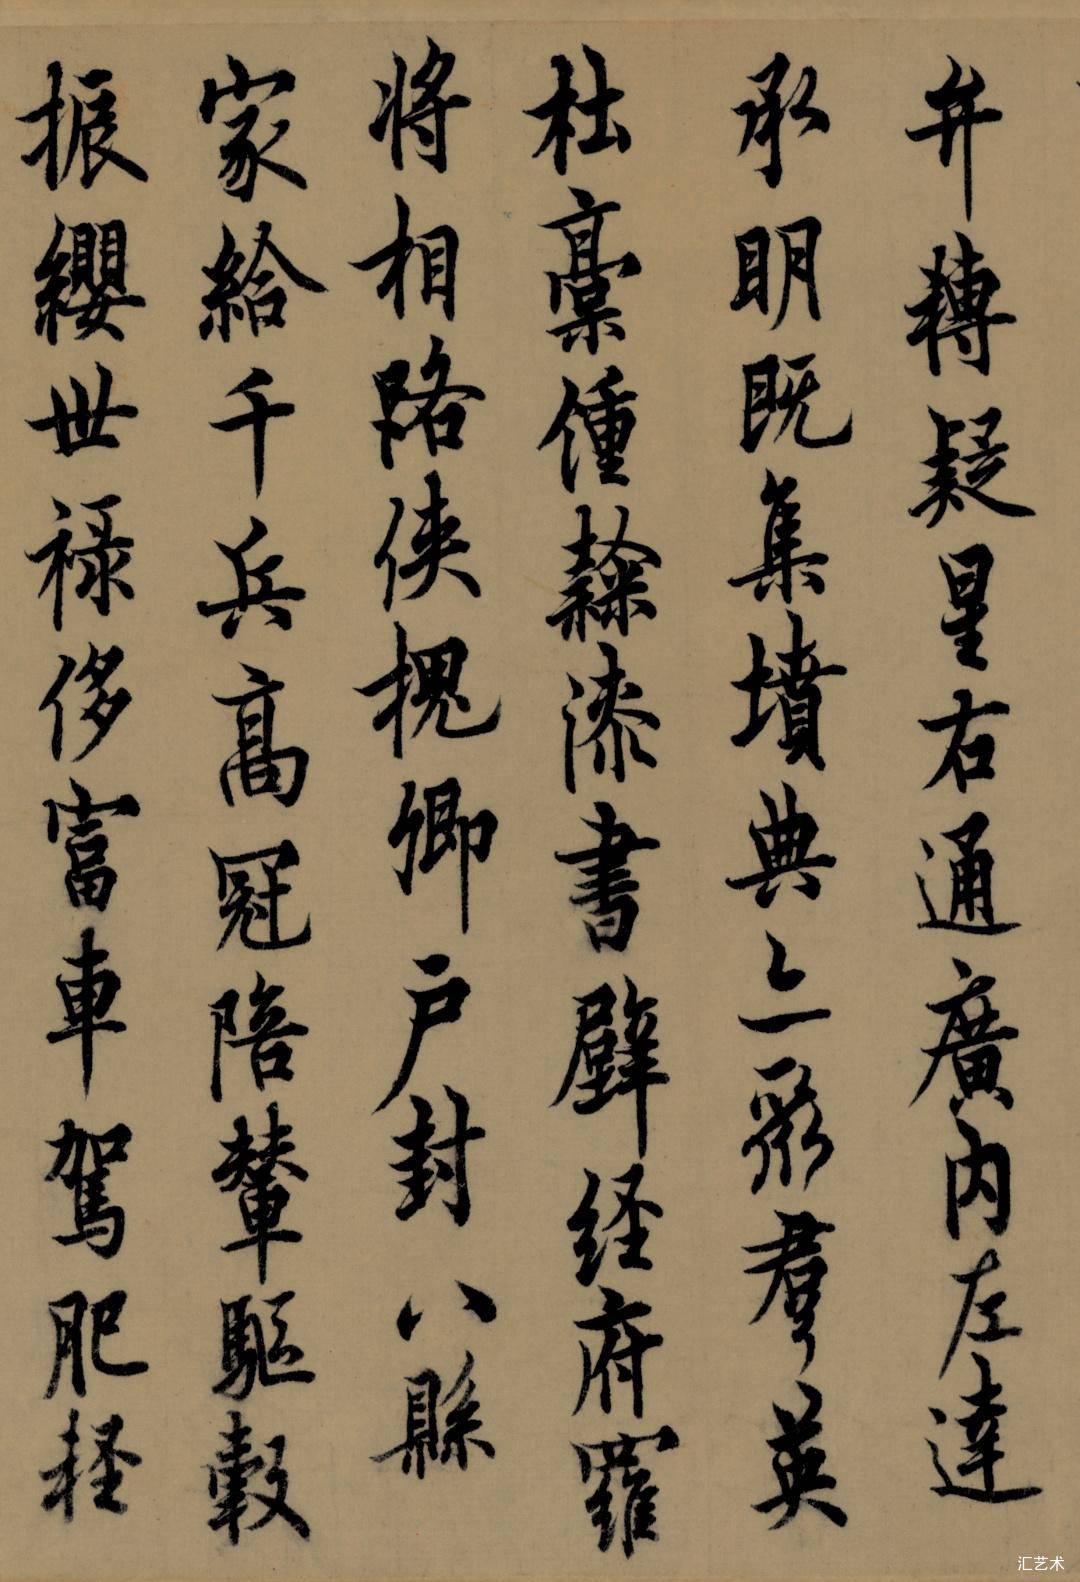 弁轉疑星右通廣内左達
承明既集墳典亦聚群英
杜稾鍾隸漆書壁経府羅
将相路俠槐卿户封八縣
家給千兵高冠陪輦驅轂
振纓世禄侈富車駕肥軽
汇艺术